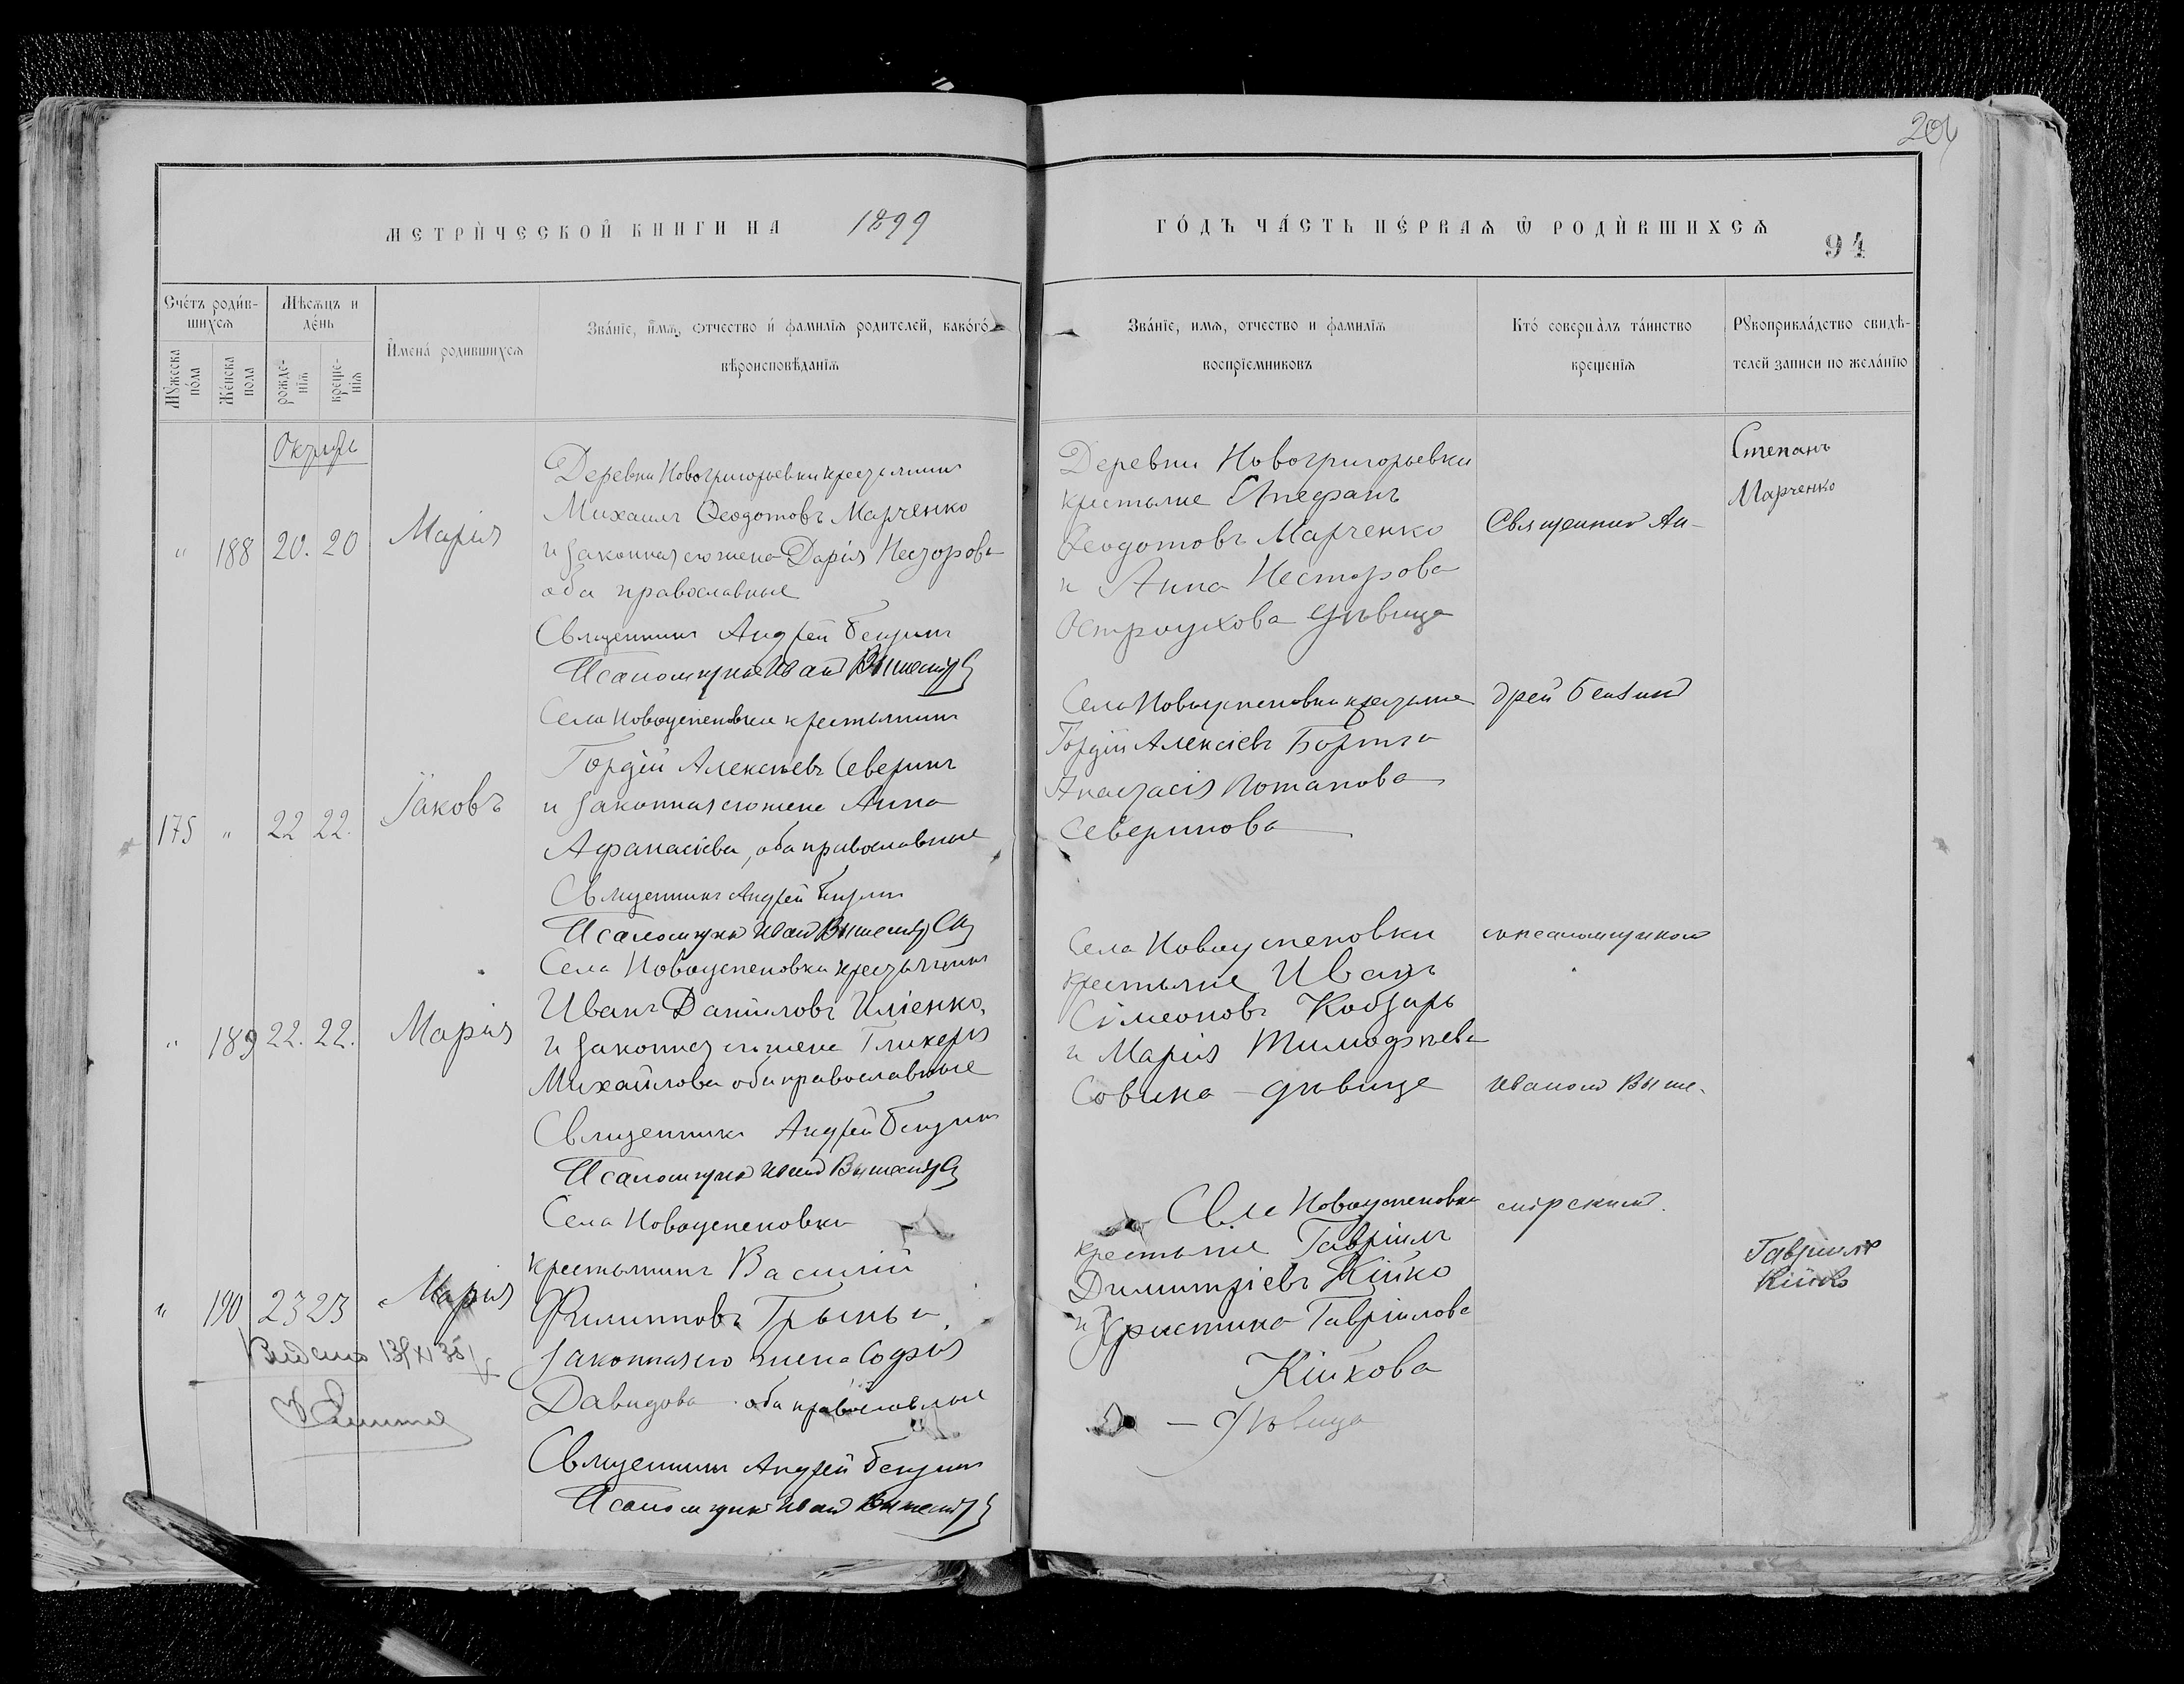 204
МЕТРИ́ЧЕСКОЙ КНИГИ НА 1899 ГО́ДЪ ЧА́СТЬ ПЕ́РВАѦ Ѿ РОДИ́ВШИХСѦ
94
Сче́тъ роди́в-
шихсѧ
Мꙋ́жеска
по́ла
Же́нска
пола
Мѣсѧцъ и
де́нь
рожде-
нїѧ
креще-
нїѧ
Имена́ родившихсѧ
Зва́нїе, и́мѧ, отчество и́ фамилїѧ родителей, како́го
вѣроисповѣданїѧ
Зва́нїе, имѧ, отчество и фамилїѧ
воспрїемниковъ
Кто́ соверша́лъ та́инство
крещенїѧ
Рꙋкоприкла́дство свидѣ-
телей записи по жела́нїю
Октябрь
" 188 20. 20 Марія
Деревни Новогригорьевки крестьянинъ
Михаилъ Ѳеодотовъ Марченко
и законная его жена Дарія Несторова
оба православные
Священникъ Андрей Бензинъ
Псаломщикъ Иванъ
Деревни Новогригорьевки
крестьяне Стефанъ
Ѳеодотовъ Марченко
и Анна Несторова
Остроухова дѣвица
Священникъ Ан-
Степанъ
Марченко
175 " 22 22. Іаковъ
Села Новоуспеновки крестьянинъ
Гордій Алексѣевъ Северинъ
и законная его жена Анна
Афанасіева, оба православные
Священникъ Андрей Бензинъ
Псаломщикъ Иванъ
Села Новоуспеновки крестьяне
Гордій Алексіевъ и
Анастасія Потапова
Северинова
дрей Бензинъ
" 189 22. 22. Марія
Села Новоуспеновки крестьянинъ
Иванъ Даніиловъ Иліенко,
и законная его жена Гликерія
Михаилова оба православные
Священникъ Андрей Бензинъ
Псаломщикъ Иванъ
Села Новоуспеновки
крестьяне Иванъ
Сімеоновъ Кобзарь
и Марія Тимофѣева
Совина - дѣвица
съ псаломщикомъ
Иваномъ Выше-
" 190 23 23 Марія
Села Новоуспеновки
крестьянинъ Василій
Филипповъ Грынь и
законная его жена Софія
Давидова оба православные
Священникъ Андрей Бензинъ
Псаломщикъ Иванъ
Села Новоуспеновки
крестьяне Гавріилъ
Димитріевъ Кійко
и Христина Гавріилова
Кійкова
- дѣвица
мірскимъ.
Гавриилъ
Кійко
Видано 13/XI 35